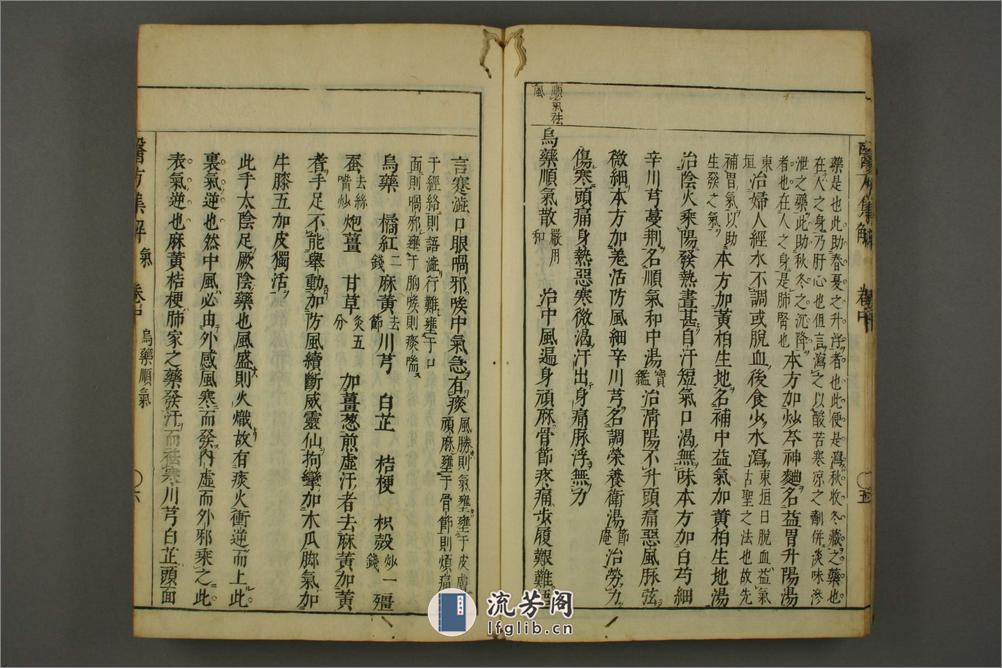 藥是也此助春夏之升浮者也此便是瀉秋收冬藏之藥也
在人之身乃肝心也但言瀉之以酸苦寒涼之劑併淡味滲
泄之藥此助秋冬之沉降
者也在人之身是肺腎也本方加炒芩神麯名益胃升陽湯
東垣治婦人經水不調或脫血後食少水瀉東垣曰脫血益氣
古聖之法也故先
補胃氣以助
生發之氣本方加黃柏生地名補中益氣加黃柏生地湯
治陰火乘陽發熱晝甚自汗短氣口渴無味本方加白芍細
辛川芎蔓荊名順氣和中湯寶鑑治清陽不升頭痛惡風脈弦
微細本方加羌活防風細辛川芎名調榮養衛湯節庵治勞力
傷寒頭痛身熱惡寒微渴汗出身痛脈浮無力
順氣祛風
烏藥順氣散嚴用和 治中風遍身頑麻骨節疼痛步履艱難語
言蹇澁口眼喎邪喉中氣急有痰風勝則氣壅壅于皮膚則
頑麻壅于骨節則煩痛
于經絡則語澁行難壅于口
面則喎邪壅于胸喉則痰喘
烏藥 橘紅二錢 麻黃去節 川芎 白芷 桔梗 枳殼炒一錢 殭
蚕去絲嘴炒 炮薑 甘草炙五分 加薑葱煎虛汗者去麻黃加黃
耆手足不能舉動加防風續斷威靈仙拘攣加木瓜脚氣加
牛膝五加皮獨活
此手太陰足厥陰藥也風盛則火熾故有痰火衝逆而上此
裏氣逆也然中風必由外感風寒而發內虛而外邪乘之此
表氣逆也麻黃桔梗肺家之藥發汗而祛寒川芎白芷頭面
醫方集解 卷中 五
醫方集解 氣 卷中 烏藥順氣 六
流芳阁
lfglib.cn